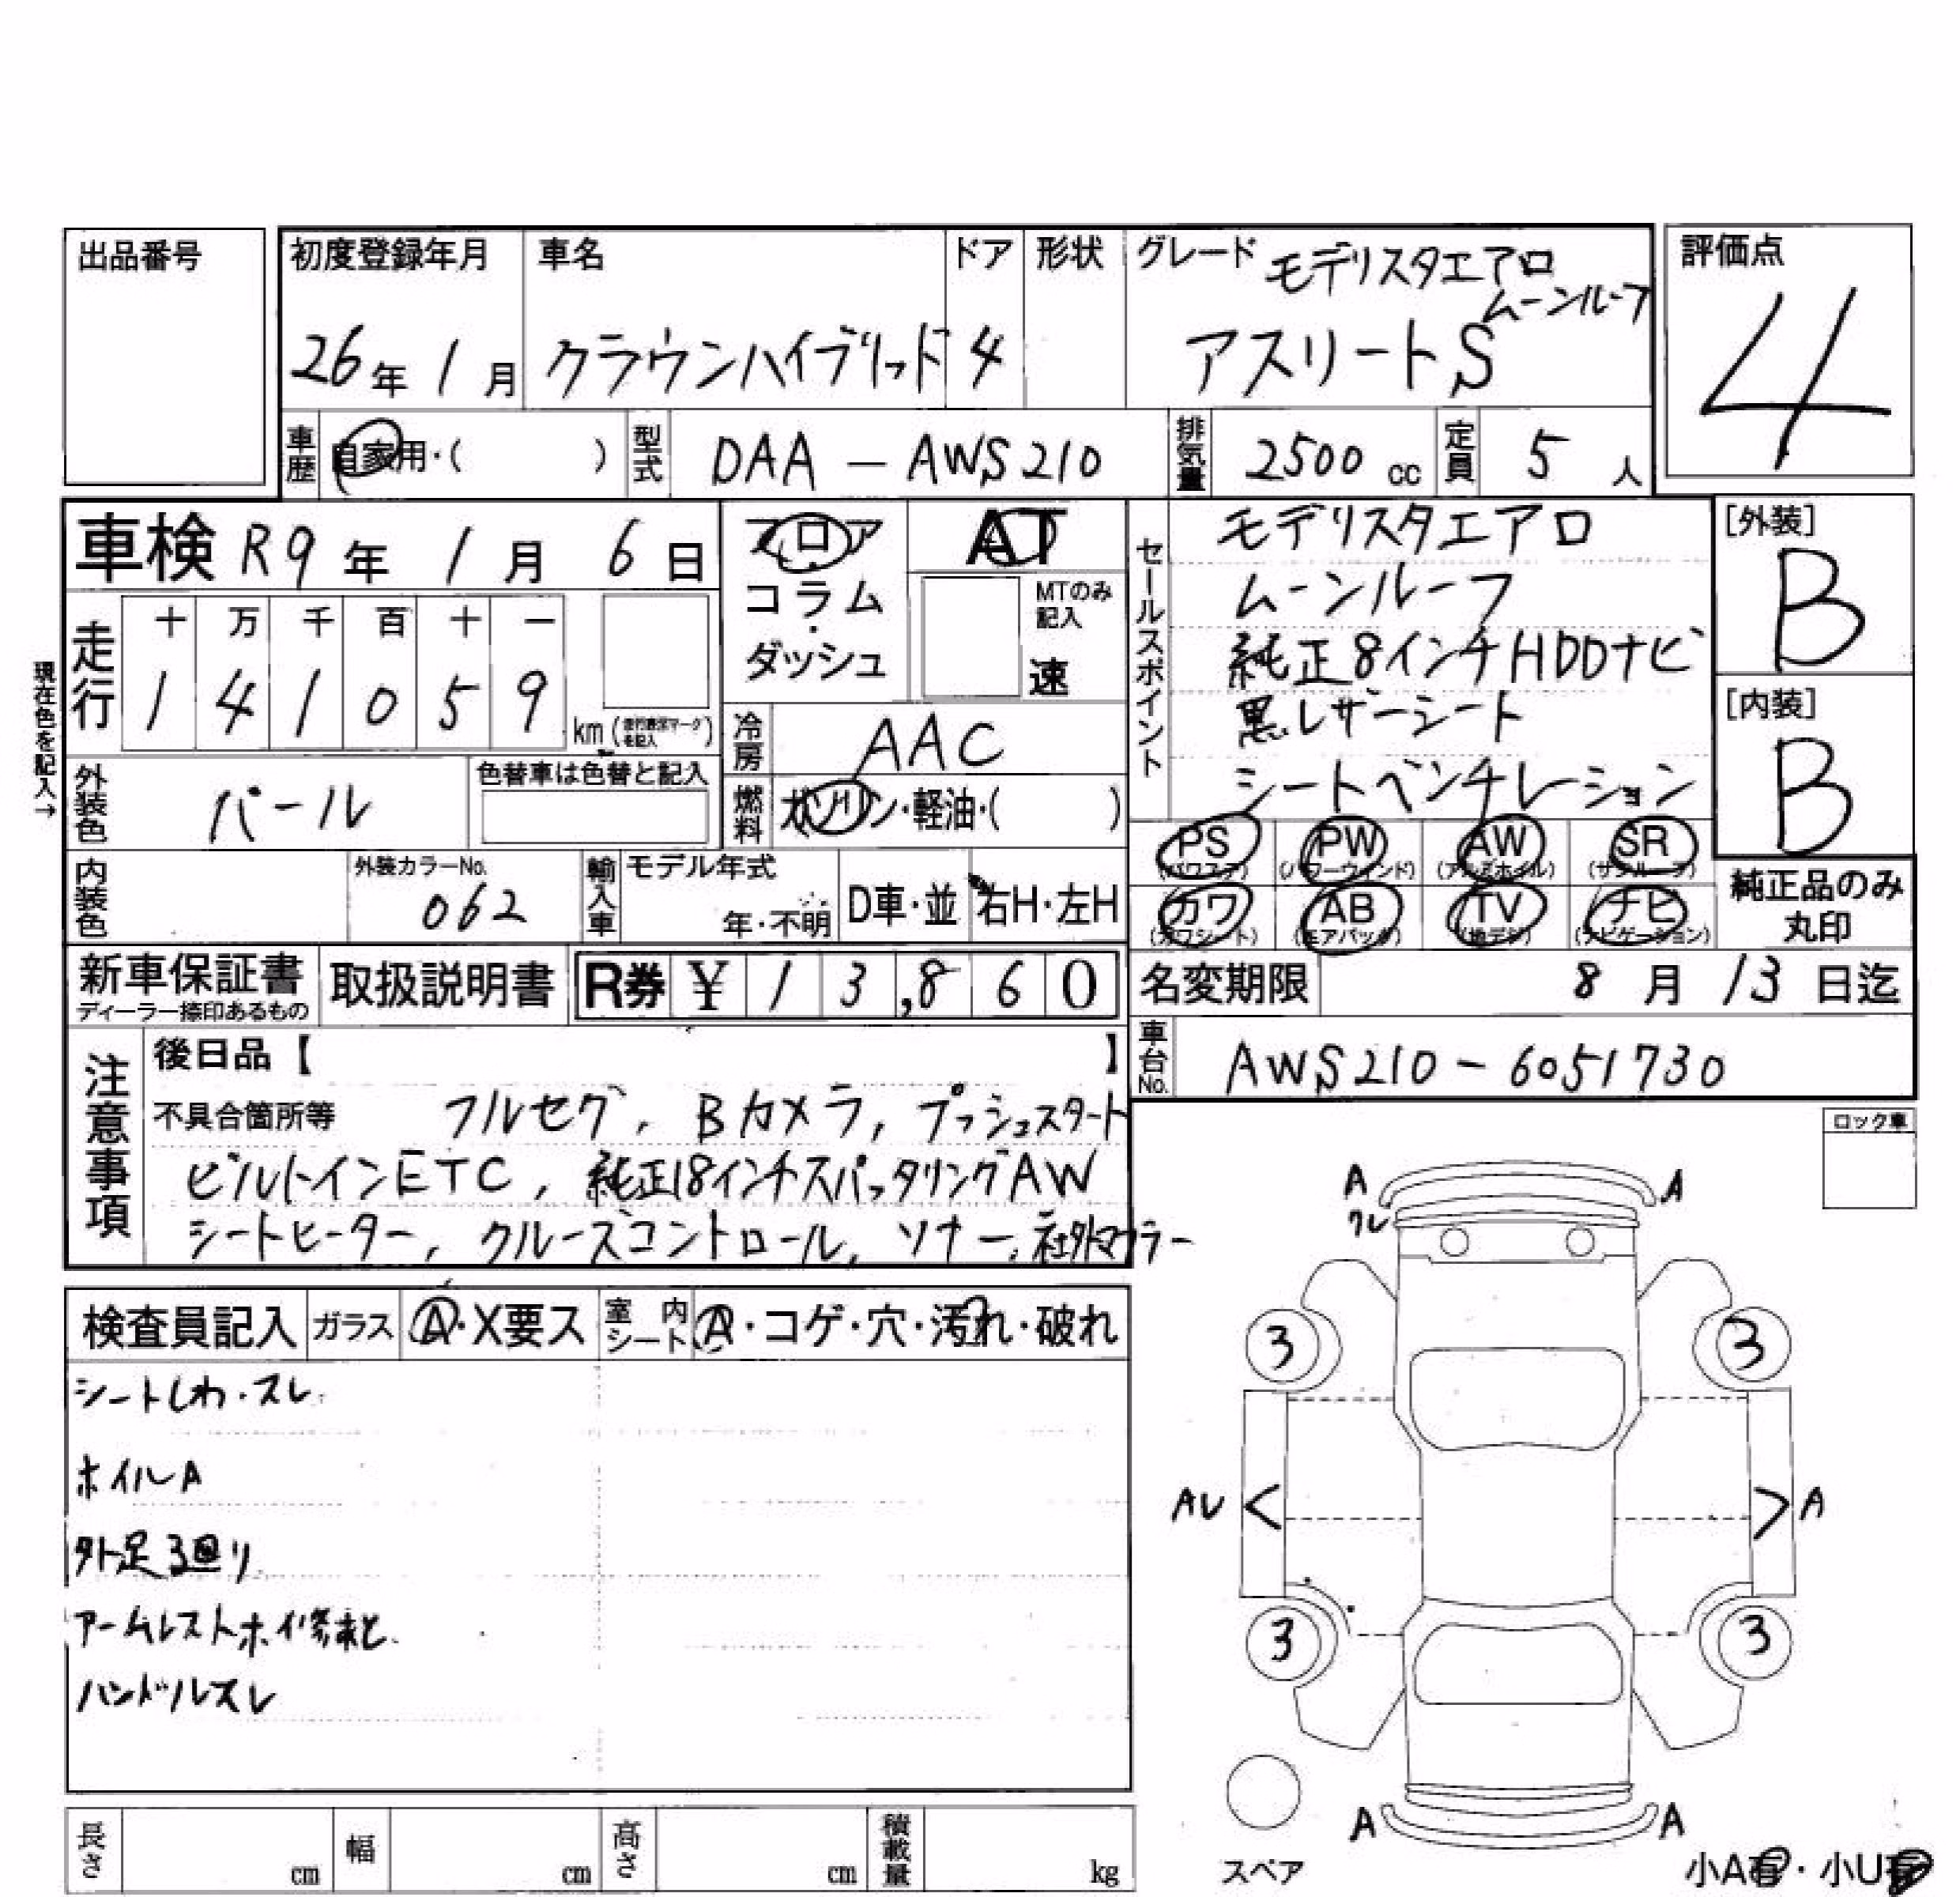 出品番号
初度登録年月 車名 ドア 形状 グレード モデリスタエアロ 評価点
ムーンルーフ
26年 1月 クラウンハイブリッド 4 アスリートS 4
車歴 自家用・( ) 型式 DAA-AWS210 排気量 2500 cc 定員 5 人
車検 R9年 1月 6日 フロア AT
コラム・ダッシュ MTのみ記入 速
セールスポイント
モデリスタエアロ
ムーンルーフ
純正8インチHDDナビ
黒レザーシート
シートベンチレーション
[外装] B
[内装] B
現在色を記入→
走行 十 万 千 百 十 一
1 4 1 0 5 9 km
冷房 AAC
外装色 パール 色替車は色替と記入
燃料 ガソリン・軽油・( )
PS (パワステ) PW (パワーウィンド) AW (アルミホイル) SR (サンルーフ)
カワ (カワシート) AB (エアバック) TV (地デジ) ナビ (ナビゲーション)
純正品のみ丸印
内装色 外装カラーNo. 062 輸入車 モデル年式 年・不明 D車・並 右H・左H
新車保証書 ディーラー捺印あるもの 取扱説明書 R券 ¥ 13,860 名変期限 8月 13日迄
車台No. AWS210-6051730
注意事項 後日品【 】
不具合箇所等 フルセグ, Bカメラ, プッシュスタート
ビルトインETC, 純正18インチスパッタリングAW
シートヒーター, クルーズコントロール, ソナー, 社外マフラー
ロック車
検査員記入 ガラス A・X要ス 室内シート A・コゲ・穴・汚れ・破れ
シートしわ・スレ
ホイルA
外足3回り
ハンドルスレ
A A
ワレ
3 3
Aレ < > A
3 3
A A
スペア
小A有・小U有
長さ cm 幅 cm 高さ cm 積載量 kg